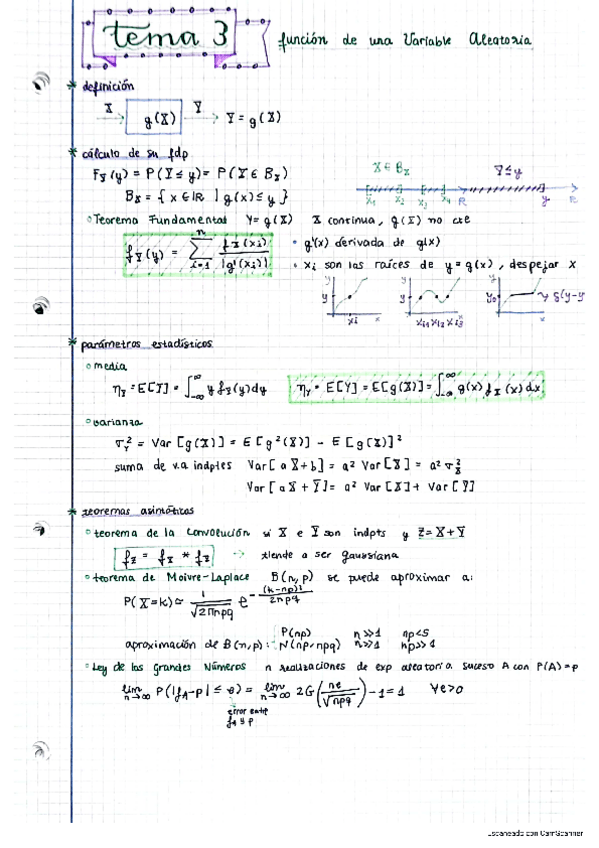 tema 3
función de una Variable Aleatoria
* definición
X → g(X) → Y = g(X)
* cálculo de su fdp
F_Y(y) = P(Y ≤ y) = P(X ∈ B_X)
B_X = { x ∈ IR | g(x) ≤ y }
X ∈ B_X
Y ≤ y
x₁ x₂ x₃ x₄ R y R
○ Teorema Fundamental Y = g(X) X continua, g(X) no cte
f_Y(y) = Σ_{i=1}^{n} f_X(xi) / |g'(xi)|
• g'(x) derivada de g(x)
• xi son las raíces de y = g(x), despejar x
y xi x
y xi1 xi2 xi3 x
y₀ x
* parámetros estadísticos
○ media
η_Y = E[Y] = ∫_{-∞}^{∞} y f_Y(y) dy
η_Y = E[Y] = E[g(X)] = ∫_{-∞}^{∞} g(x) f_X(x) dx
○ varianza
σ_Y² = Var[g(X)] = E[g²(X)] - E[g(X)]²
suma de v.a indptes Var[aX+b] = a² Var[X] = a² σ_X²
Var[aX + Y] = a² Var[X] + Var[Y]
* teoremas asintóticos
○ teorema de la convolución si X e Y son indpts y Z = X + Y
f_Z = f_X * f_Y → tiende a ser gaussiana
○ teorema de Moivre-Laplace B(n,p) se puede aproximar a:
P(X=k) ≃ 1/√(2πnpq) e^{-(k-np)²/2npq}
aproximación de B(n,p):
P(np) n≫1 np<5
N(np, npq) n≫1 np≫1
○ Ley de los Grandes Números n realizaciones de exp aleatoria suceso A con P(A)=p
lim_{n→∞} P(|f_A - p| ≤ e) = lim_{n→∞} 2G(ne/√npq) - 1 = 1 ∀e>0
error entre
f_A y p
Escaneado con CamScanner